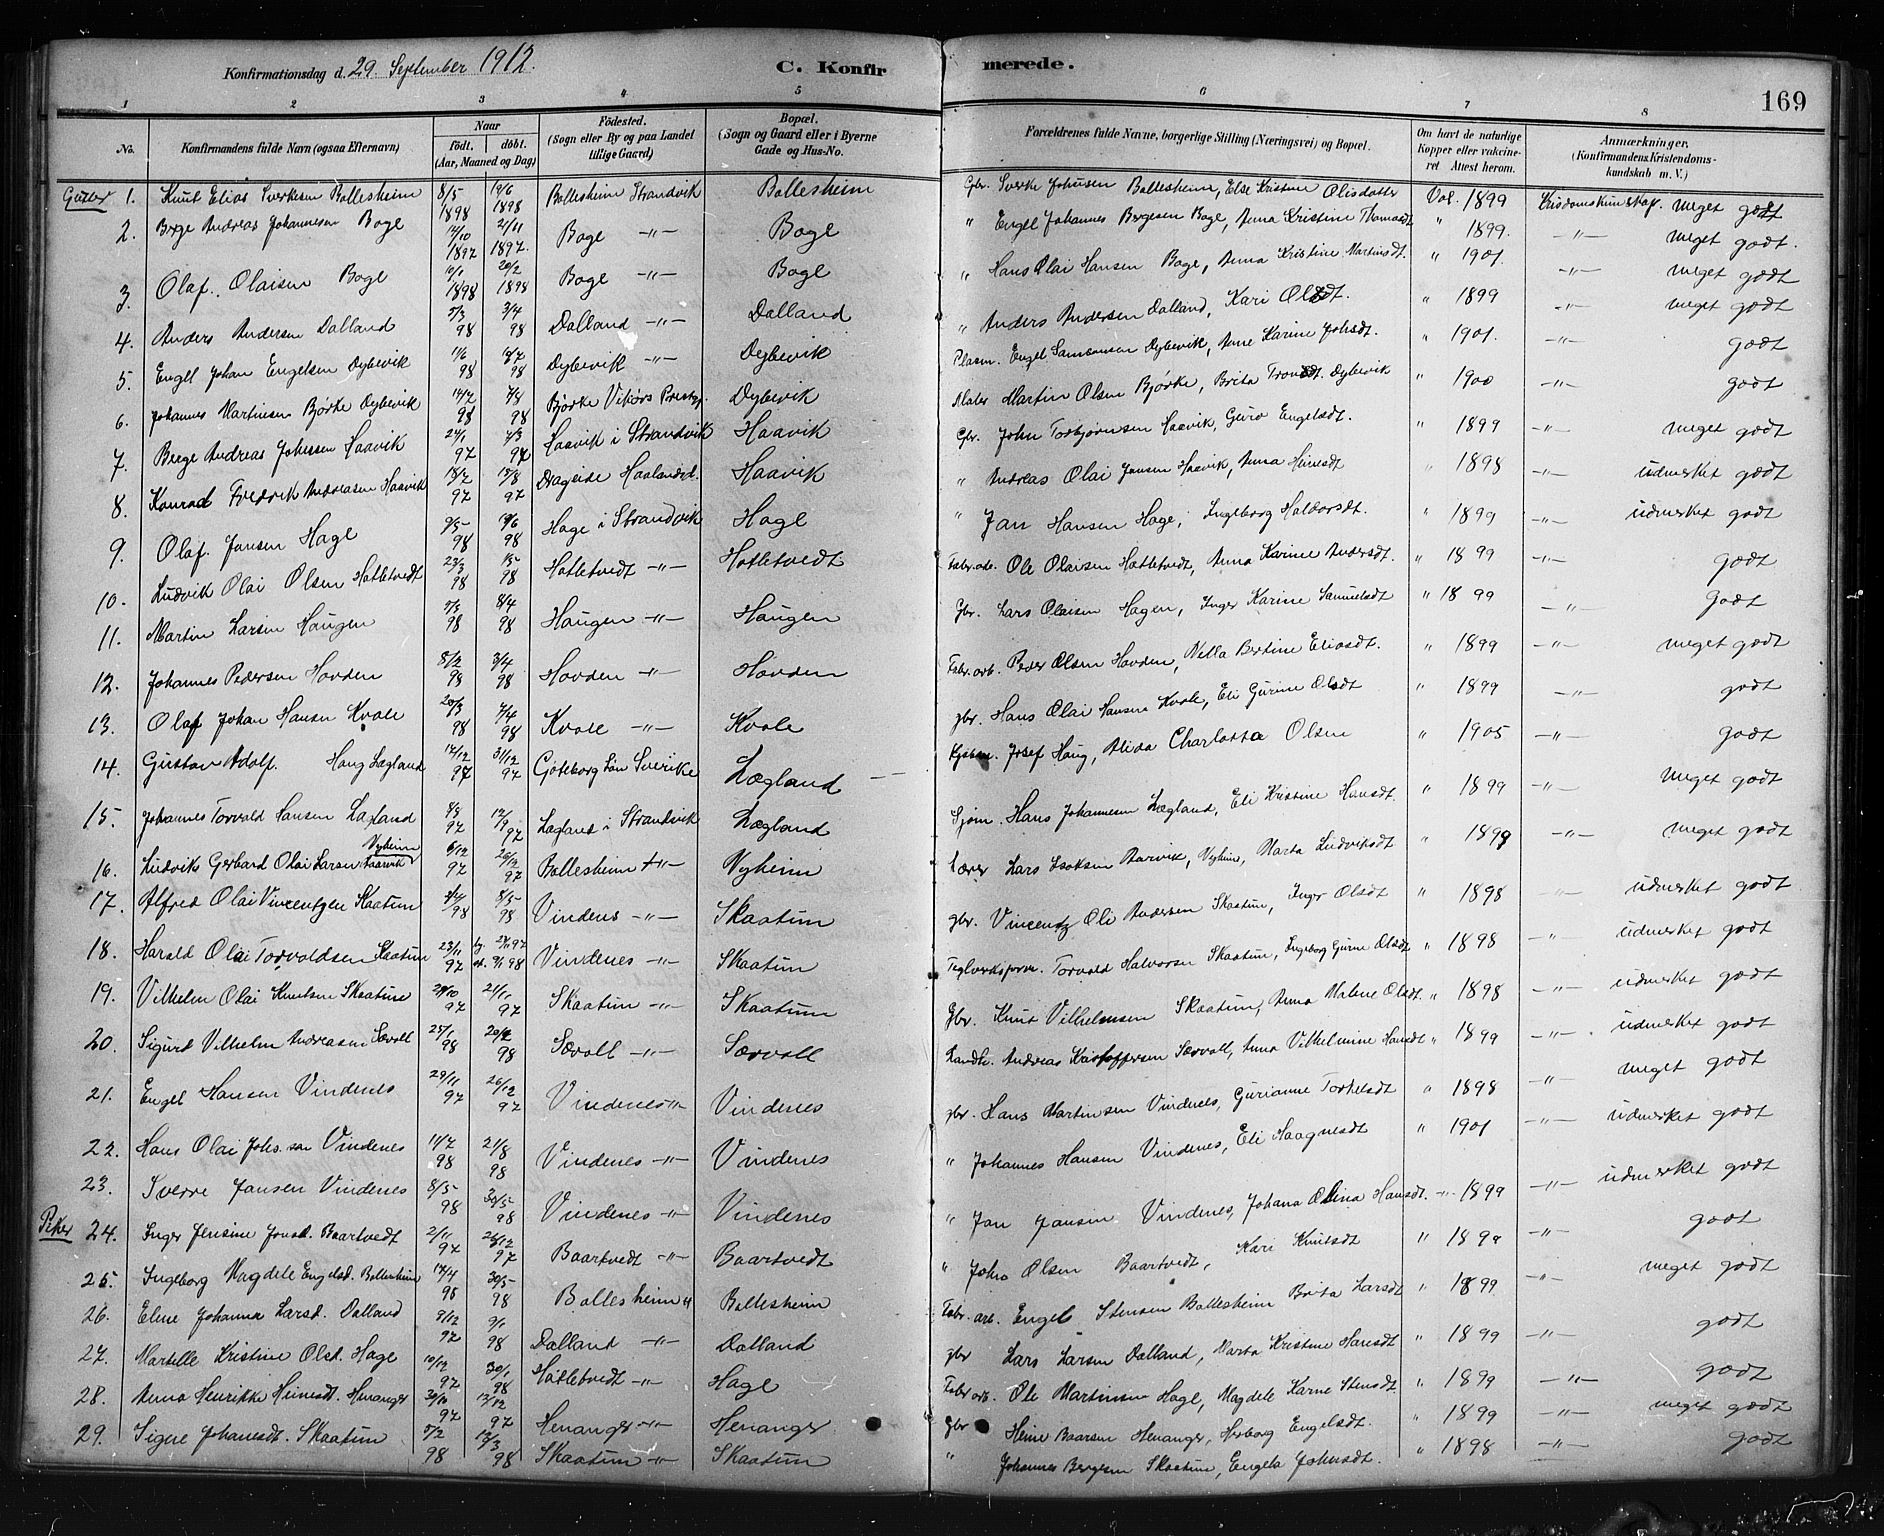 Konfirmationsdag d. 29. September 1912. C. Konfirmerede. 169
1 2 3 4 5 6 7 8
No. Konfirmandens fulde Navn (ogsaa Efternavn) Naar født. døbt. (Aar, Maaned og Dag) Fødested. (Sogn eller By og paa Landet tillige Gaard) Bopæl. (Sogn og Gaard eller i Byerne Gade og Hus-No. Forældrenes fulde Navne, borgerlige Stilling (Næringsvei) og Bopæl. Om havt de naturlige Kopper eller vaccineret Attest herom. Anmærkninger. (Konfirmandens Kristendomskundskab m. V.)
Gutter 1. Knut Elias Sverkesen Ballesheim 8/5 1898 19/6 1898 Ballesheim Strandvik Ballesheim Gbr. Sverke Johnsen Ballesheim, Else Kristine Olisdatter Val. 1899 Krisdomskunskap. meget godt
2. Berge Andreas Johannesen Boge 14/10 1897 21/11 1897 Boge -"- Boge " Engel Johannes Bergesen Boge, Anna Kristine Thomasdt " 1899. -"- meget godt.
3. Olaf. Olaisen Boge 10/1 1898 20/2 1898 Boge -"- Boge " Hans Olai Hansen Boge, Anna Kristine Martinsdt. " 1901 -"- meget godt
4. Anders Andersen Dalland 5/3 98 3/4 98 Dalland -"- Dalland " Anders Andersen Dalland, Kari Olsdt. " 1899 -"- meget godt
5. Engel Johan Engelsen Dybevik 11/6 98 98 Dybevik -"- Dybevik Plasm. Engel Samsonsen Dybevik, Anne Karine Johsdt. " 1901. -"- godt
6. Johannes Martinsen Bjørke Dybevik 14/2 98 7/8 98 Bjørke Vikørs Prestgj. Dybevik Maler Martin Olsen Bjørke, Brita Trondsdt. Dybevik " 1900 -"- godt
7. Berge Andreas Johnsen Haavik 24/1 97 7/3 97 Haavik i Strandvik Haavik Gbr. John Torbjørnsen Haavik, Guro Engelsdt. " 1899 -"- meget godt
8. Konrad Fredrik Andreasen Haavik 18/2 97 15/8 97 Drageide Haalandsd. Haavik " Andreas Olai Jansen Haavik, Anna Heinesdt " 1898 -"- udmerket godt
9. Olaf. Jansen Hage 9/5 98 19/6 98 Hage i Strandvik Hage " Jan Hansen Hage, Ingeborg Haldorsdt. " 1899 -"- udmerket godt
10. Ludvik Olai Olsen Hatletvedt 23/3 98 1/5 98 Hatletvedt -"- Hatletvedt Fabr.arb. Ole Olaisen Hatletvedt, Anna Karine Andersdt " 1899 -"- godt
11. Martin Larsen Haugen 5/3 98 8/4 98 Haugen -"- Haugen Gbr. Lars Olaisen Hagen, Inger Karine Samuelsdt " 1899 -"- godt
12. Johannes Pedersen Hovden 8/2 98 3/4 98 Hovden -"- Hovden Fabr.arb. Peder Olsen Hovden, Nella Bertine Eliasdt. " 1899 -"- meget godt
13. Olaf Johan Hansen Kvale 20/3 98 7/4 98 Kvale -"- Kvale gbr. Hans Olai Hansen Kvale, Eli Gurine Olsdt " 1899 -"- godt
14. Gustav Adolf. Haug Lægland 12/12 97 31/12 97 Göteborg Län Sverike Lægland Josef Haug, Alida Charlotta Olsen " 1905 -"- godt
15. Johannes Torvald Hansen Lægland 8/8 97 12/9 97 Lægland i Strandvik Lægland Sjøm. Hans Johannesen Lægland, Eli Kristine Hansdt. " 1899 -"- meget godt
16. Ludviks Gerhard Olai Larsen Vyheim 6/12 97 26/12 97 Ballesheim -"- Vyheim Lærer Lars Isaksen Aarvik, Vyheim, Marta Ludviksdt " 1899 -"- meget godt
17. Alfred Olai Vincentzen Skaatun 3/4 98 8/5 98 Vindens -"- Skaatun gbr. Vincentz Oli Andersen Skaatun, Inger Olsdt " 1898 -"- udmerket godt
18. Harald Olai Torvaldsen Skaatun 23/11 97 98 Vindenes -"- Skaatun Teglverksform. Torvald Halvorsen Skaatun, Ingeborg Gurine Olsdt " 1898 -"- udmerket godt
19. Vilhelm Olai Knutsen Skaatun 29/10 97 21/11 97 Skaatun -"- Skaatun Gbr. Knut Vilhelmsen Skaatun, Anna Malene Olsdt. " 1898 -"- udmerket godt
20. Sigurd Vilhelm Andreasen Sævoll 25/1 98 20/2 98 Sævoll -"- Sævoll Landh. Andreas Kristoffersen Sævoll, Anna Vilhelmine Hansdt " 1899 -"- udmerket godt
21. Engel Hansen Vindenes 29/11 97 26/12 97 Vindenes -"- Vindenes gbr. Hans Martinsen Vindenes, Gurianne Torkelsdt " 1898 -"- meget godt
22. Hans Olai Johs.sen Vindenes 11/7 98 21/8 98 Vindenes -"- Vindenes " Johannes Hansen Vindenes, Eli Haagnesdt " 1901 -"- udmerket godt
23. Sverre Jansen Vindenes 8/5 98 30/5 98 Vindenes -"- Vindenes " Jan Jansen Vindenes, Johana Olina Hansdt. -"- 1899 -"- udmerket godt
Piker 24. Inger Jensine Jonsd. Baartvedt 2/11 97 26/12 97 Baartvedt -"- Baartvedt " John Olsen Baartvedt, Kari Knutsdt " 1899 godt
25. Ingeborg Magdele Engelsd. Ballesheim 14/4 98 30/5 98 Ballesheim " Ballesheim Fabr. arb. Engel Stensen Ballesheim Brita Larsdt " 1899 -"- meget godt
26. Eline Johanna Larsd. Dalland 9/12 97 9/1 98 Dalland -"- Dalland gbr Lars Larsen Dalland, Marta Kristine Hansdt " 1899 -"- godt
27. Martelle Kristine Olsd. Hage 10/12 97 30/1 98 Hatletvedt -"- Hage Fabr. arb. Ole Martinsen Hage, Magdele Karne Stensdt " 1899 -"- godt
28. Anna Henrikke Heinesdt. Henanger 3/10 97 12/12 97 Henanger -"- Henanger Gbr Heine Baarsen Henanger, Herborg Engelsdt. " 1899 -"- meget godt
29. Signe Johanesdt. Skaatun 5/2 98 13/3 98 Skaatun -"- Skaatun " Johannes Bergesen Skaatun, Engela Johnsdt. " 1898 -"- godt